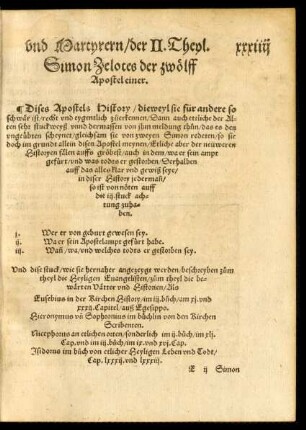 vnd Martyrern/der II. Theyl. xxxiiij
Simon Zelotes der zwölff
Apostel einer.
¶ Dises Apostels History/dieweyl sie für andere so
schwär ist/recht vnd eygentlich zůerkennen/Dann auch etliche der Al-
ten sehr stuckweyß vnnd dermassen von jhm meldung thůn/das es den
vngeübten scheynet/gleichsam sie von zweyen Simon redeten/so sie
doch im grundt allein disen Apostel meynen/Etliche aber der neuweren
Historyen fälen auffs gröbest/auch in dem/wa er sein ampt
gefürt/vnd was todts er gestorben/Derhalben
auff das alles klar vnd gewiß seye/
in diser History jedermañ/
so ist von nöten auff
die iij. stuck ach-
tung zuha-
ben.
j. Wer er von geburt gewesen sey.
ij. Wa er sein Apostelampt gefürt habe.
iij. Wañ/wa/vnd welches todts er gestorben sey.
Vnd dise stuck/wie sie hernaher angezeygt werden/beschreyben zům
theyl die Heyligen Euangelisten/zům theyl die be-
wärten Vätter vnd Historien/Als
Eusebius in der Kirchen History/im iij. bůch/am xj. vnd
xxxij. Capitel/auß Egesippo.
Hieronymus vñ Sophronius im büchlin von den Kirchen
Scribenten.
Nicephorus an etlichen orten/sonderlich im ij. bůch/im xlj.
Cap. vnd im iij. bůch/im ix. vnd xvj. Cap.
Isidorus im bůch von etlicher Heyligen Leben vnd Todt/
Cap. lxxxij. vnd lxxxiij.
E ij Simon